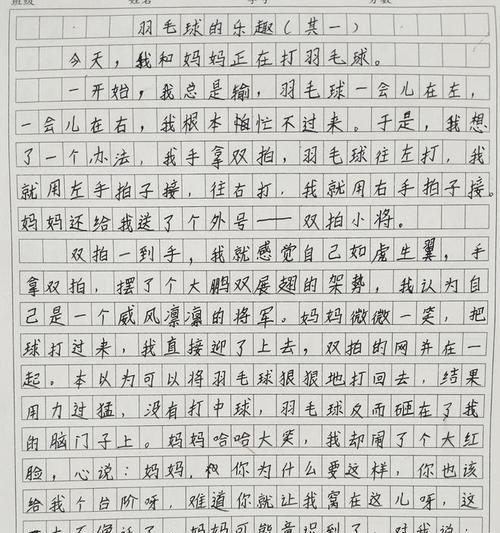 班级 姓名 学号 分数
羽毛球的乐趣(其一)
今天,我和妈妈正在打羽毛球。
一开始,我总是输,羽毛球一会儿在左,
一会儿在右,我根本忙不过来。于是,我想
了一个办法,我手拿双拍,羽毛球往左打,我
就用左手拍子接,往右打,我就用右手拍子接。
妈妈还给我送了个外号——双拍小将。
双拍一到手,我就感觉自己如虎生翼,手
拿双拍,摆了个大鹏双展翅的架势,我认为自
己是一个威风凛凛的将军。妈妈微微一笑,把
球打过来,我直接迎了上去,双拍的网并在一
起。本以为可以将羽毛球狠狠地打回去,结果
用力过猛,没有打中球,羽毛球反而砸在了我
的脑门子上。妈妈哈哈大笑,我却闹了个大红
脸,心说:妈妈,你为什么要这样,你也该
给我个台阶呀,难道你就让我窝在这儿呀,这
妈妈可能意识到了,对我说: